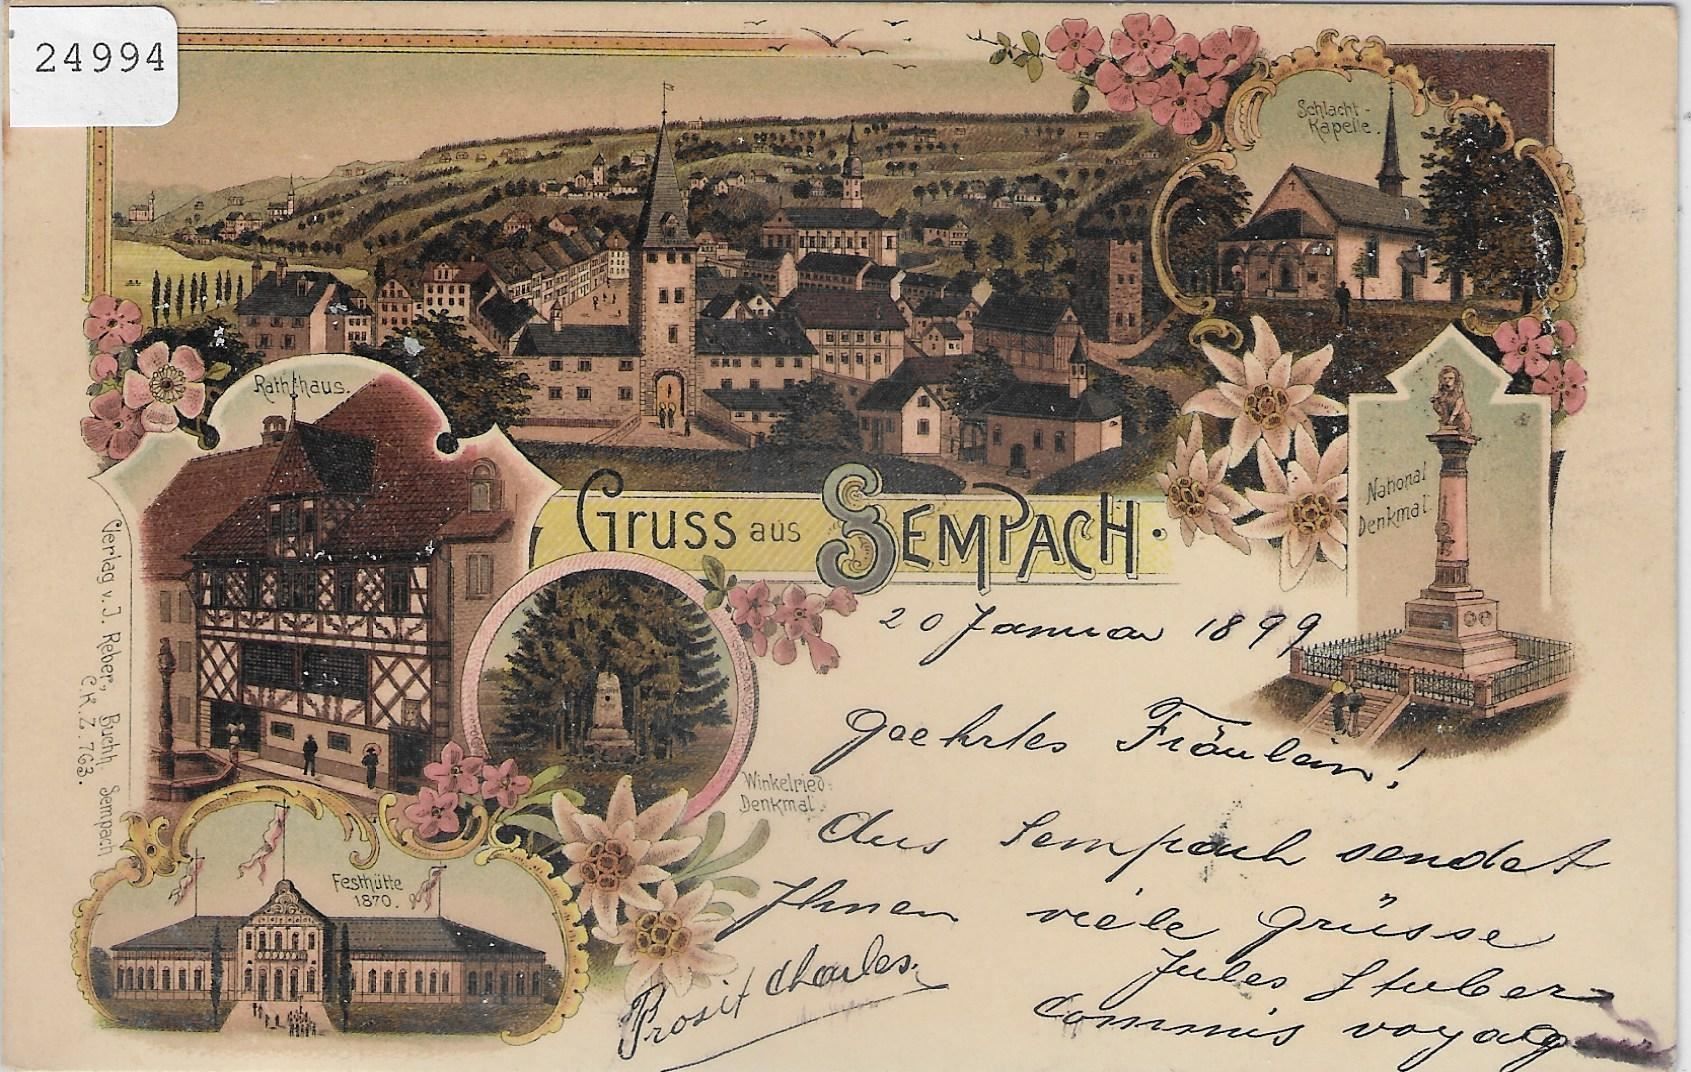 24994
Schlacht-
Kapelle.
Rathhaus.
National
Denkmal.
Gruss aus Sempach.
Winkelried-
Denkmal.
Festhütte
1870.
Verlag v. J. Reber, Buchh. Sempach
C.K.Z. 763.
20 Januar 1899
Geehrtes Fräulein!
Aus Sempach sendet
Ihnen viele Grüsse
Jules Stuber
Commis voyag
Prosit Charles.